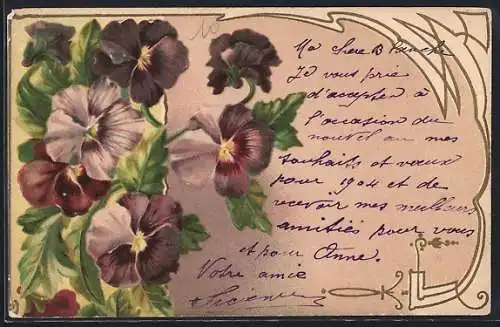 Ma chère Blanche
Je vous prie
d'accepter à
l'occasion du
nouvel an mes
souhaits et vœux
pour 1904 et de
recevoir mes meilleurs
amitiés pour vous
et pour Anne.
Votre amie